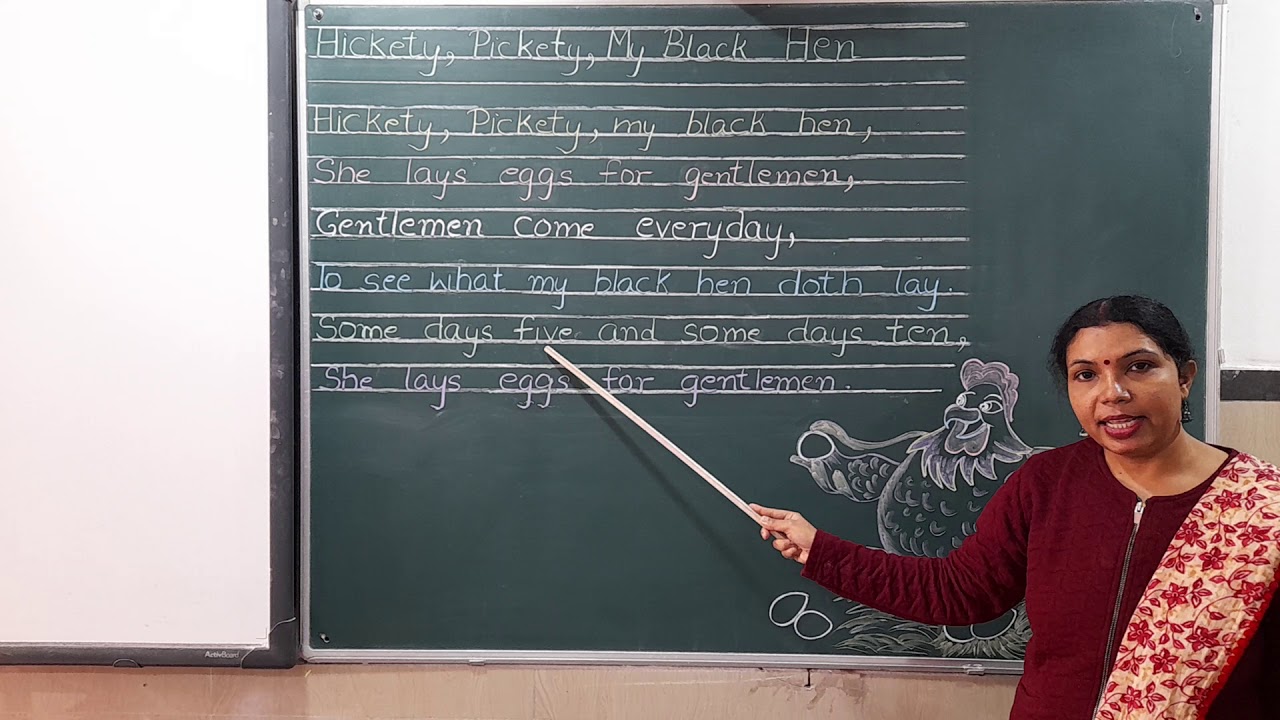 Hickety, Pickety, My Black Hen
Hickety, Pickety, my black hen,
She lays eggs for gentlemen,
Gentlemen come everyday,
To see what my black hen doth lay.
Some days five and some days ten,
She lays eggs for gentlemen.
ActivBoard